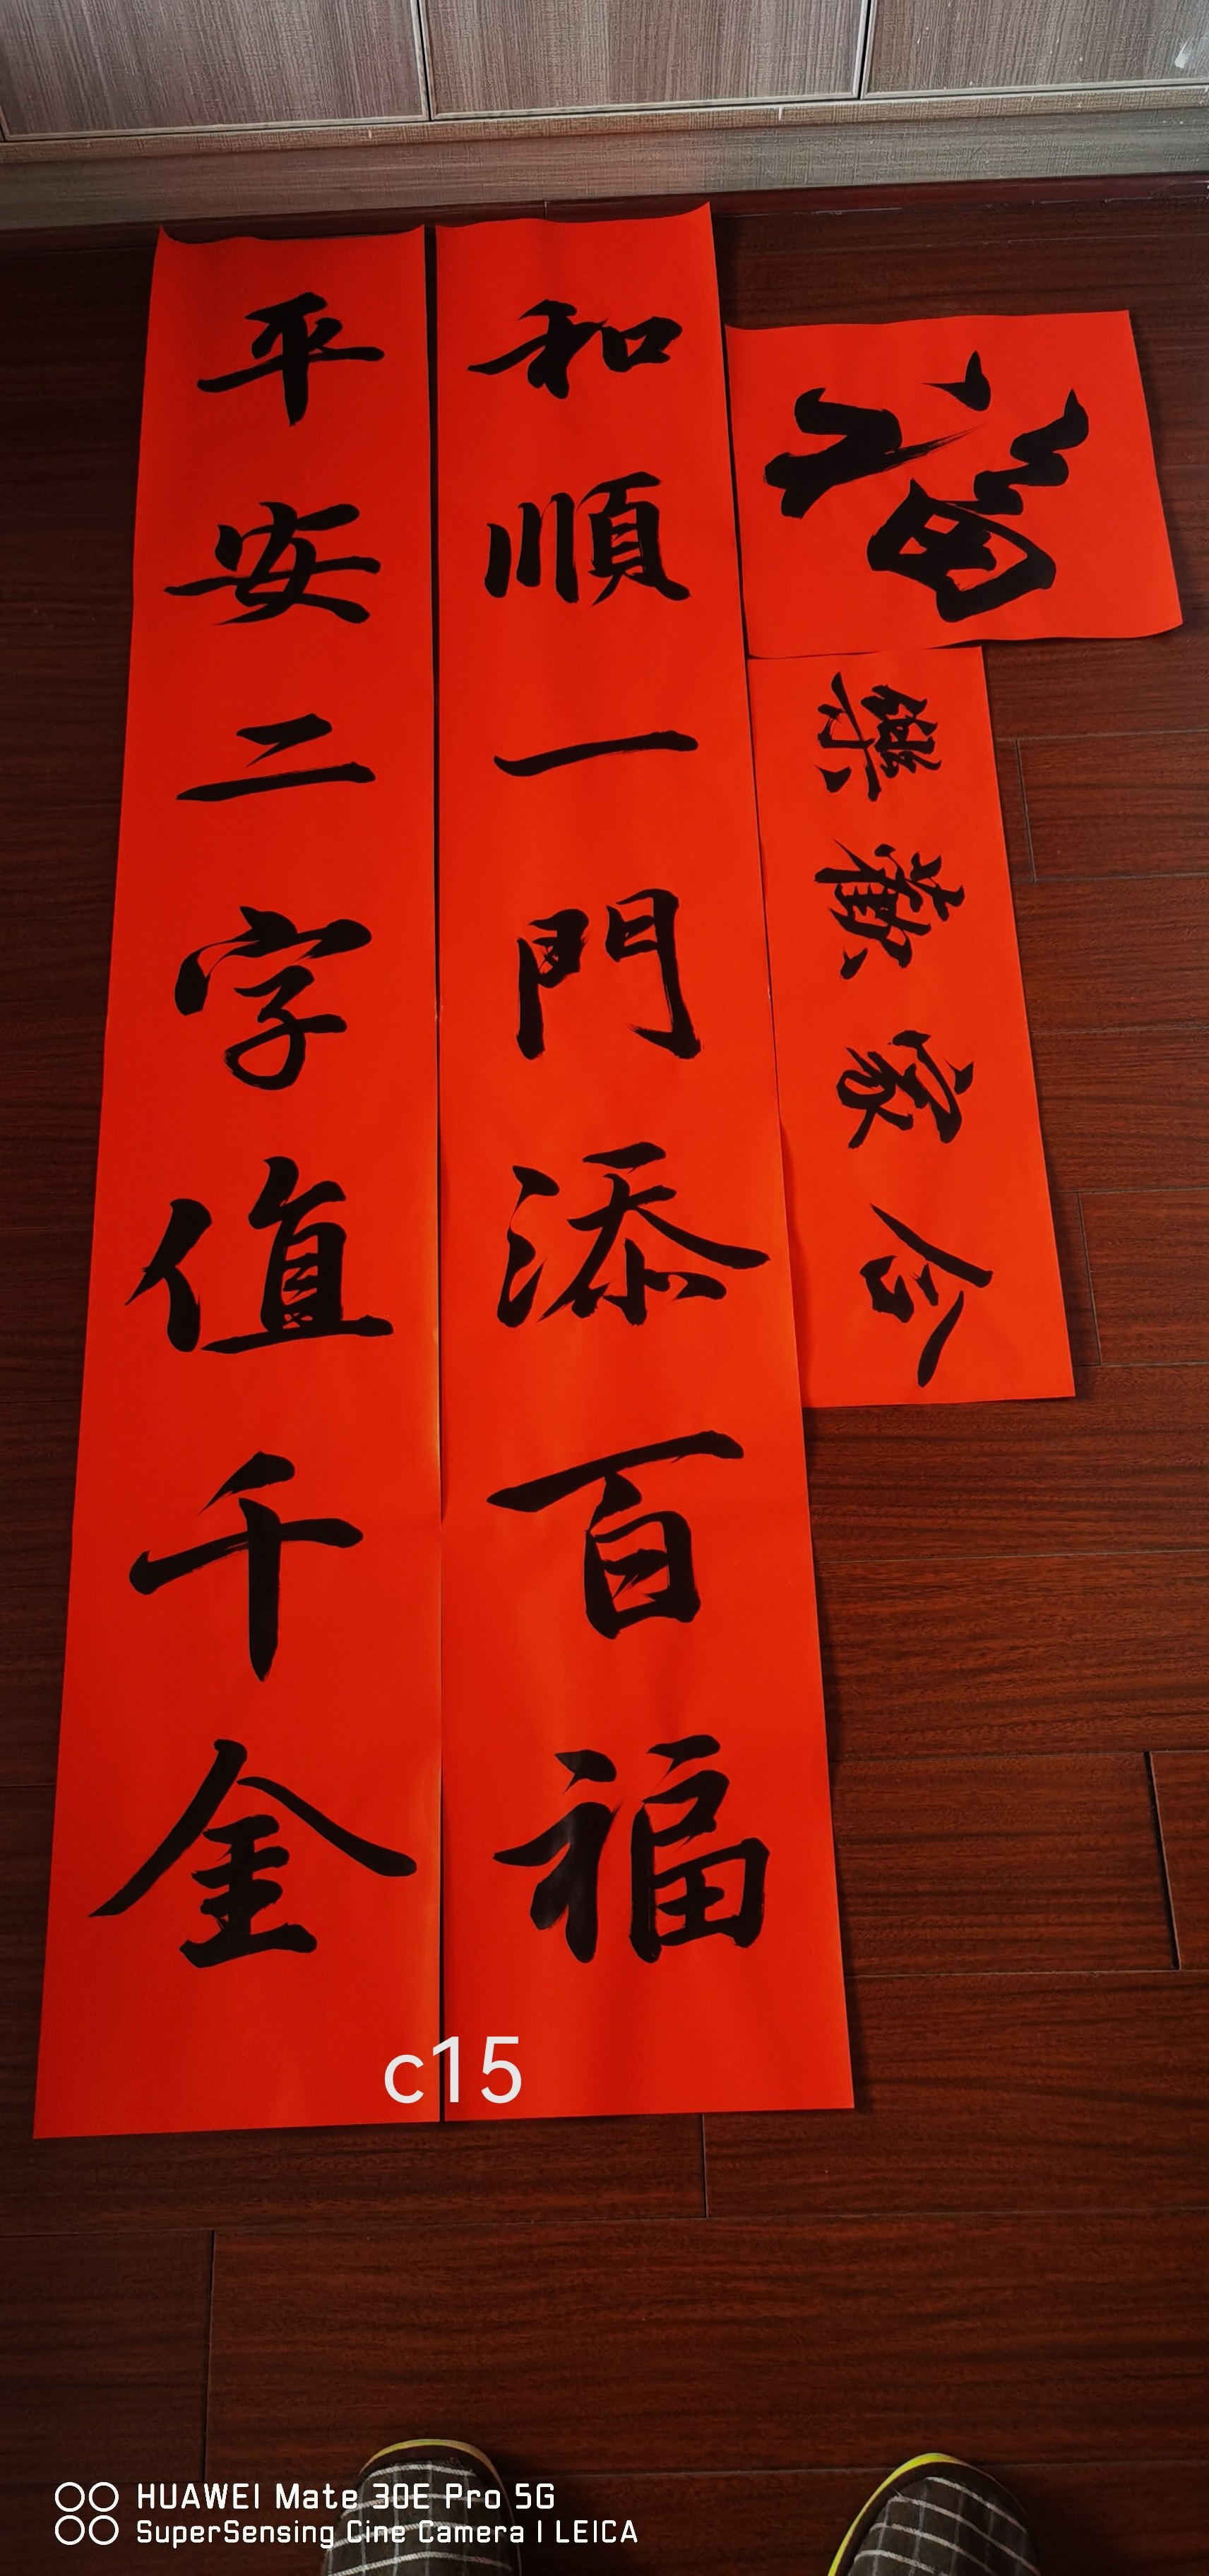 和順一門添百福
平安二字值千金
福
合家歡樂
c15
HUAWEI Mate 30E Pro 5G
SuperSensing Cine Camera | LEICA